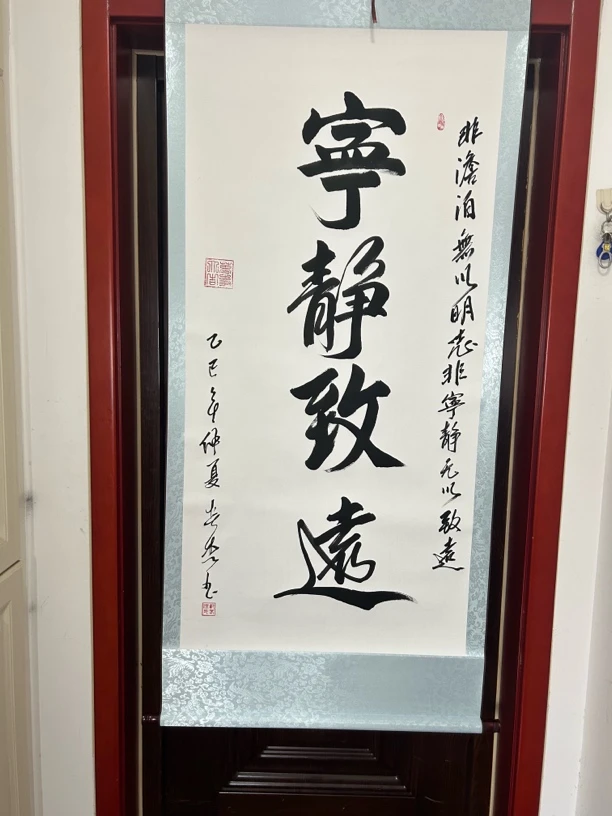 非澹泊無以明志非寧靜无以致遠
寧靜致遠
乙巳年仲夏